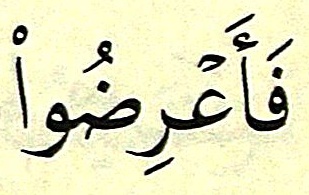 فَأَعْرِضُوا۟